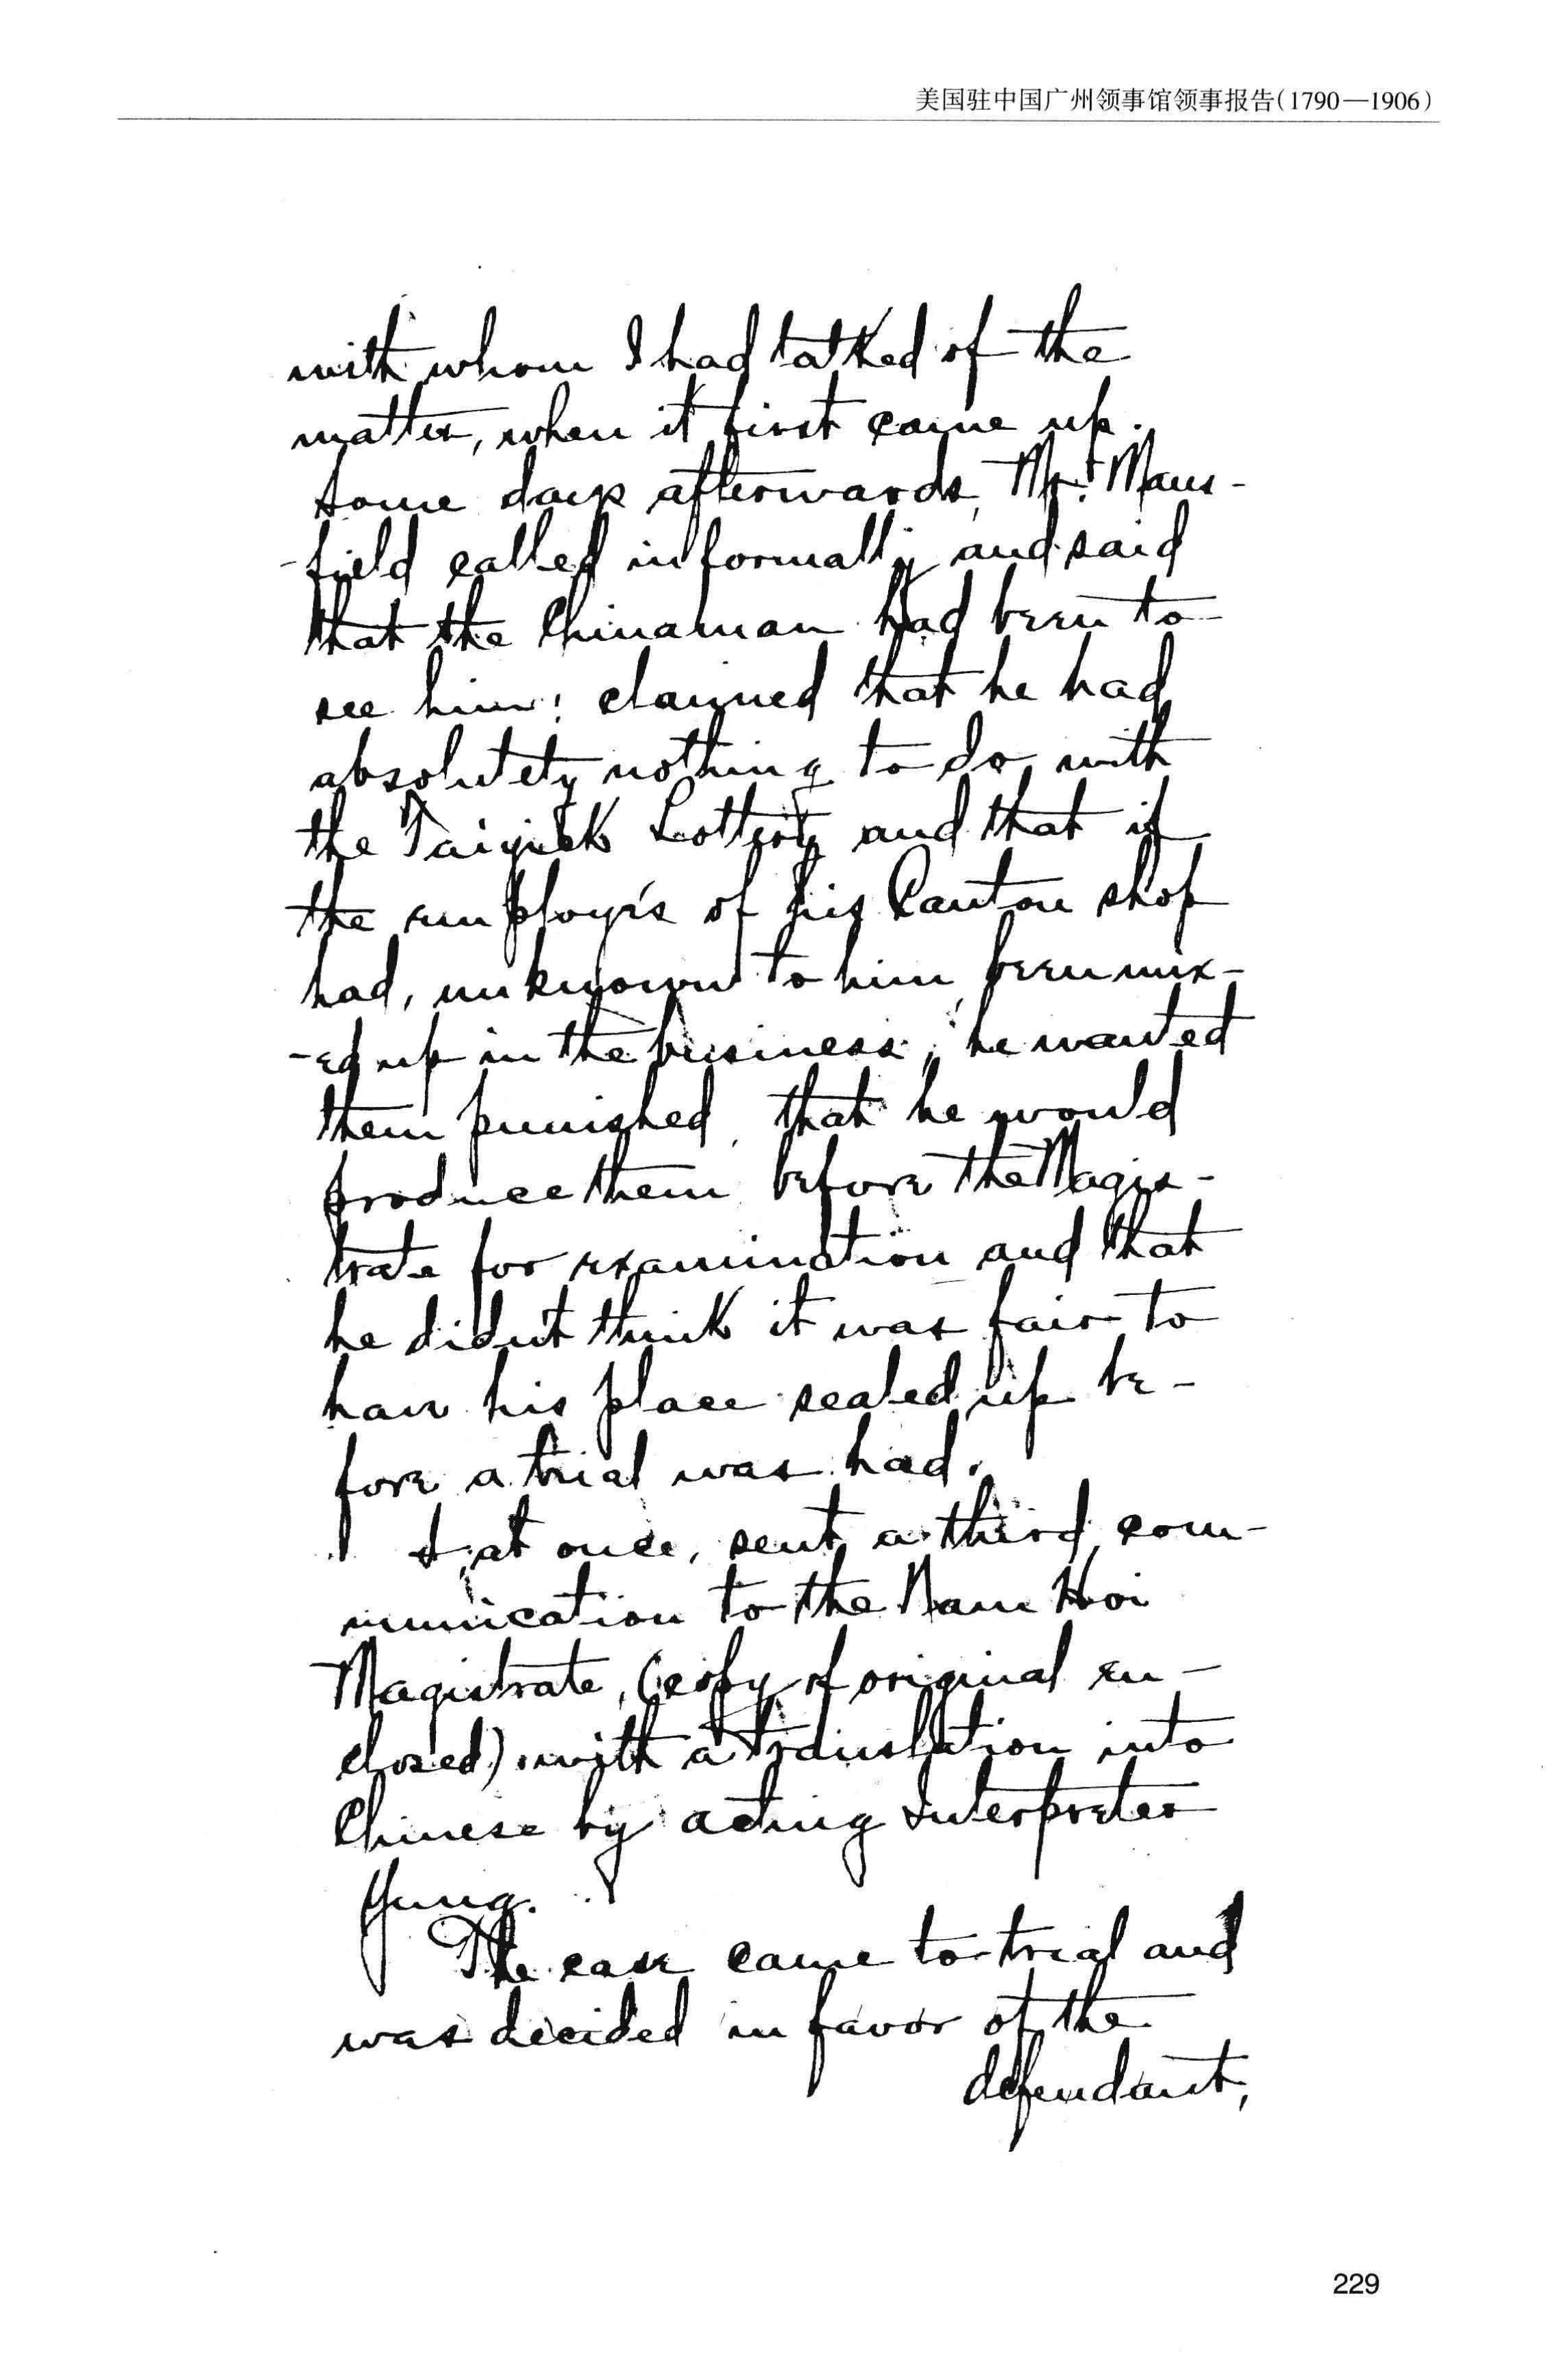 美国驻中国广州领事馆领事报告(1790—1906)
with whom I had talked of the
matter, when it first came up.
Some days afterwards, Mr. Mans-
-field called informally and said
that the Chinaman had been to
see him: claimed that he had
absolutely nothing to do with
the Taiyick Lottery and that if
the employés of his Canton shop
had, unknown to him, been mix-
-ed up in the business, he wanted
them punished, that he would
produce them before the Magis-
trate for examination and that
he didn't think it was fair to
have his place sealed up be-
fore a trial was had.
I, at once, sent a third com-
munication to the Nam Hoi
Magistrate, (copy of original en-
closed) with a translation into
Chinese by acting Interpreter
Yung.
The case came to trial and
was decided in favor of the
defendant,
229